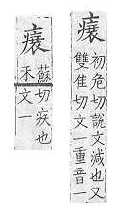 瘝
初危切說文減也又
雙隹切文一重音一
瘝
蘇切疾也
禾文一